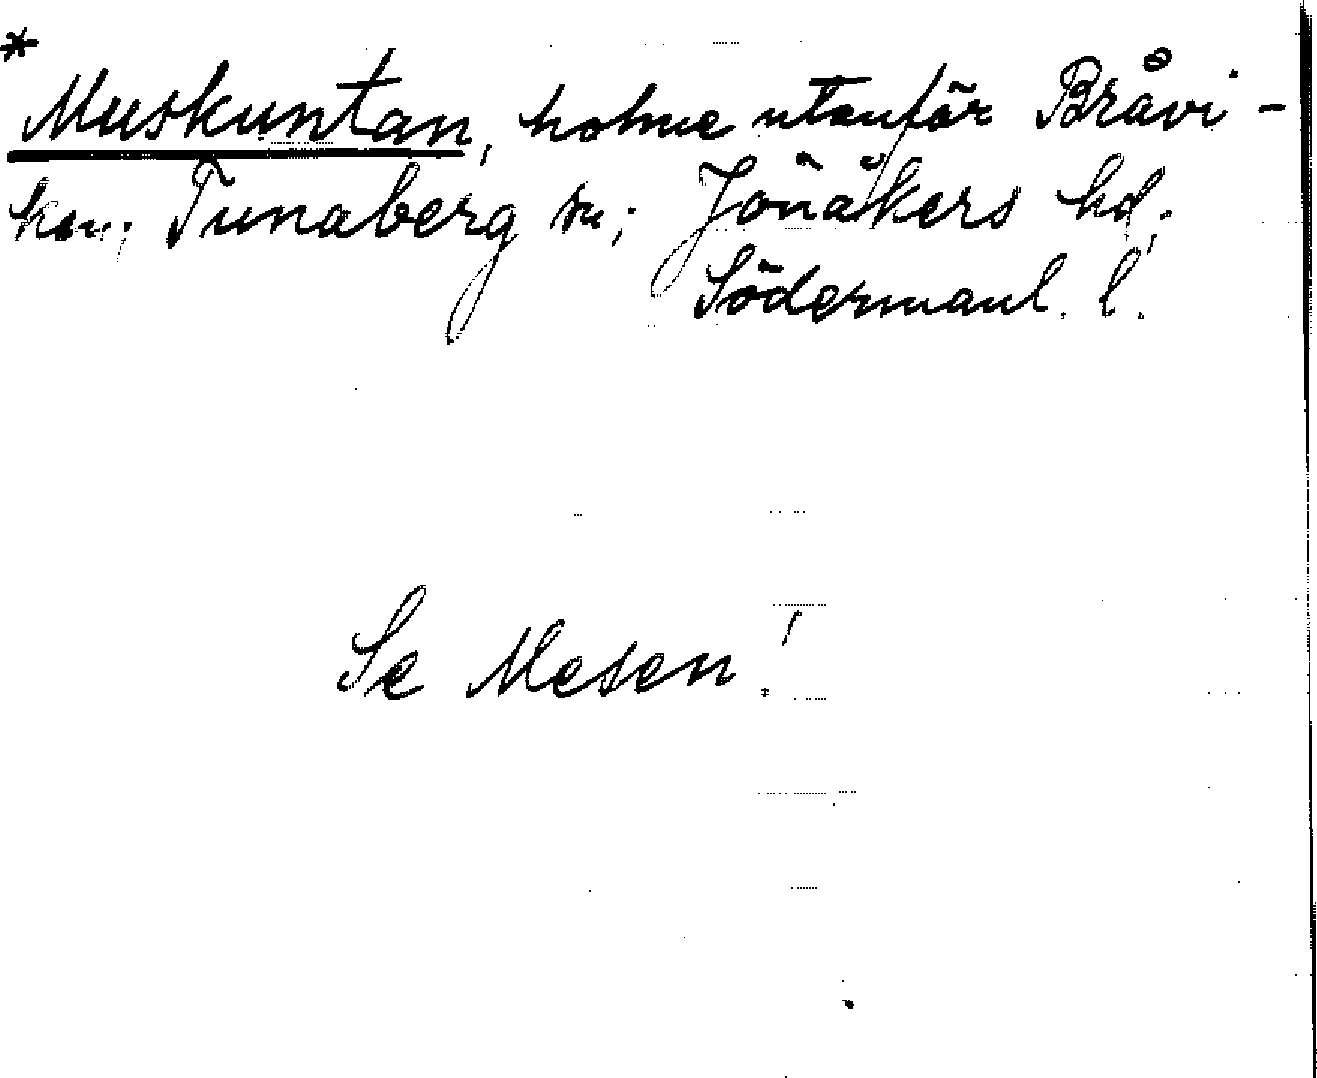 *
Muskuntan, holme utanför Bråvi-
ken; Tunaberg sn; Jönåkers hd;
Södermanl. l.
Se Mesen!